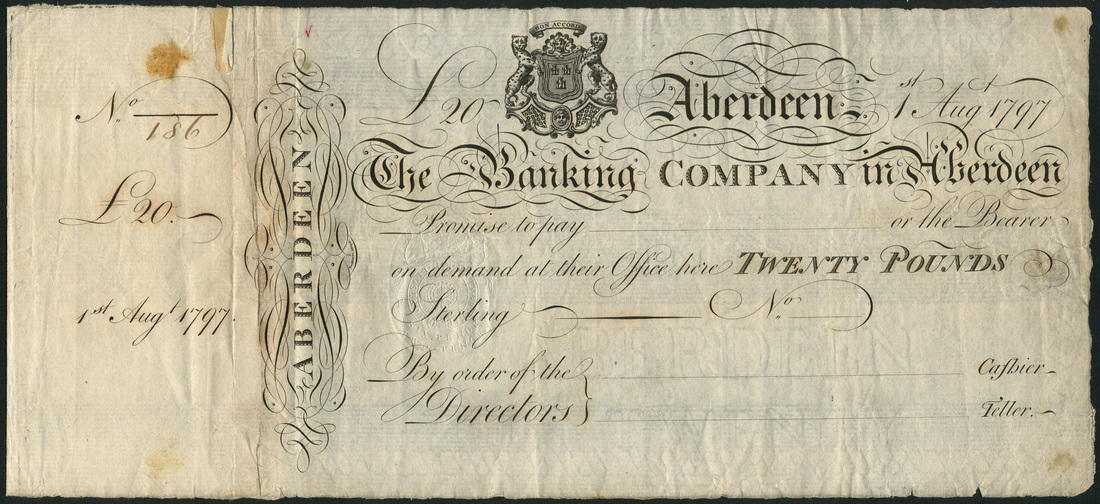 No.
186
£20.
1st Augt 1797.
ABERDEEN
BON ACCORD
£20
Aberdeen, 1st Augt 1797
The Banking COMPANY in Aberdeen
Promise to pay or the Bearer
on demand at their Office here TWENTY POUNDS
Sterling No.
By order of the Caſhier
Directors Teller.